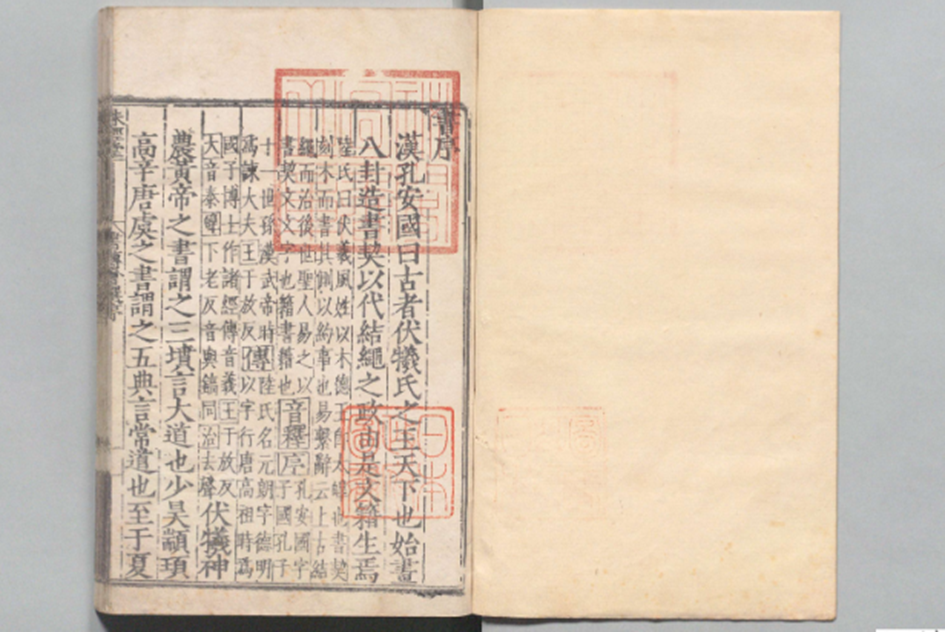 書序
漢孔安國曰古者伏犧氏之王天下也始畫
八卦造書契以代結繩之政由是文籍生焉
陸氏曰伏羲風姓以木德王即大皡也書契
刻木而書其側以約事也易繫辭云上古結
繩而治後世聖人易之以音釋序孔安國字
書契文文字也籍書籍也子國孔子
十一世孫漢武帝時陸氏名元朗字德明
爲諫大夫王于放反傳以字行唐高祖時爲
國子博士作諸經傳音義王于放反
大音泰皡下老反音與鎬同治去聲
伏犧神
農黃帝之書謂之三墳言大道也少昊顓頊
高辛唐虞之書謂之五典言常道也至于夏